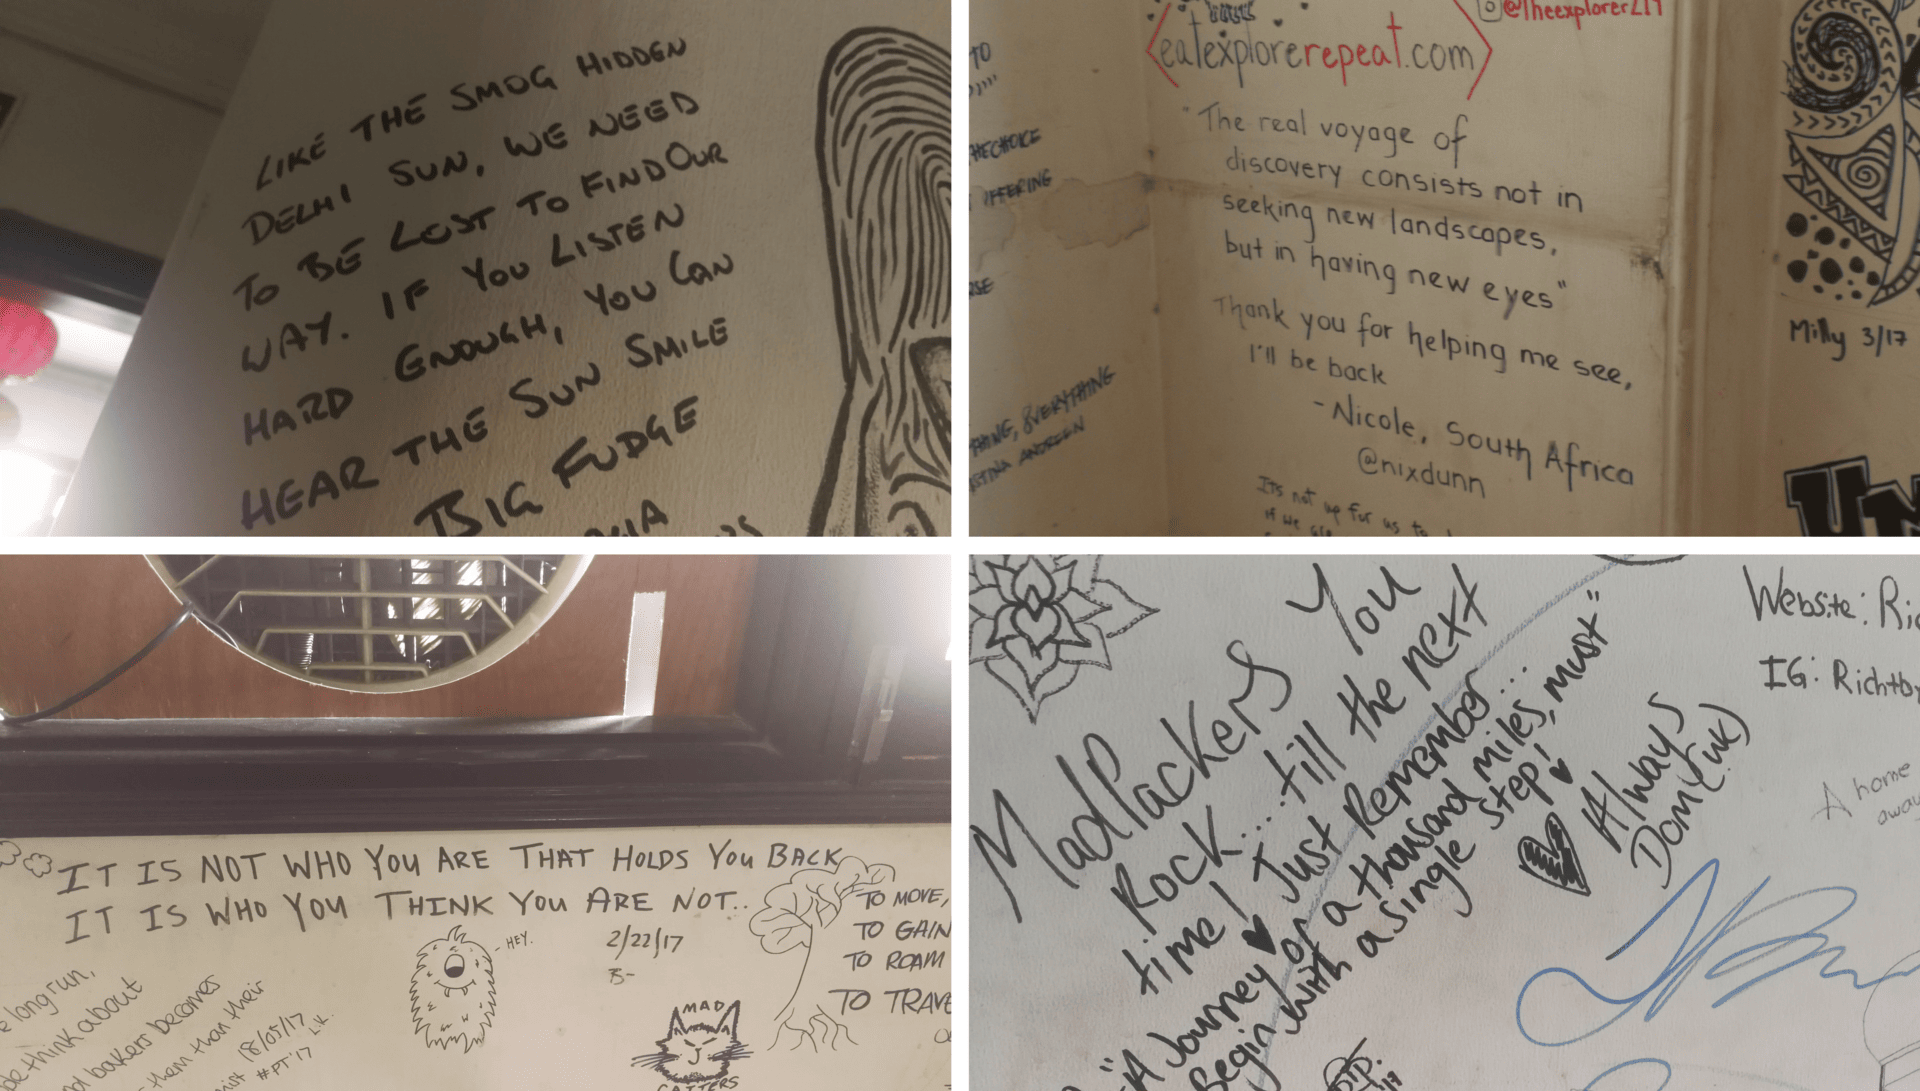 LIKE THE SMOG HIDDEN
DELHI SUN, WE NEED
TO BE LOST TO FIND OUR
WAY. IF YOU LISTEN
HARD ENOUGH, YOU CAN
HEAR THE SUN SMILE
BIG FUDGE
@Theexplorer217
eatexplorerepeat.com
"The real voyage of
discovery consists not in
seeking new landscapes,
but in having new eyes"
Thank you for helping me see,
I'll be back
-Nicole, South Africa
@nixdunn
Its not up for us to
if we
TO
THING, EVERYTHING
Milly 3/17
UN
IT IS NOT WHO YOU ARE THAT HOLDS YOU BACK
IT IS WHO YOU THINK YOU ARE NOT..
2/22/17
B-
- HEY.
TO MOVE,
TO GAIN
TO ROAM
TO TRAVE
long run,
think about
becomes
them than their
18/05/17 L.K.
#PT'17
MAD
CATTERS
MadPackers You
Rock....till the next
time! Just Remember....
"A Journey of a thousand miles, must"
Begin with a single step!
Always
Dom (UK)
Website: Ric
IG: Richtb
A home
away